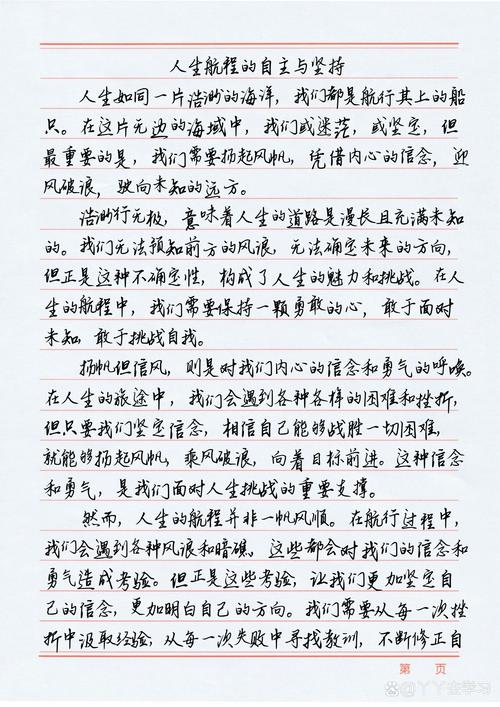 人生航程的自主与坚持
人生如同一片浩渺的海洋，我们都是航行其上的船
只。在这片无边的海域中，我们或迷茫，或坚定，但
最重要的是，我们需要扬起风帆，凭借内心的信念，迎
风破浪，驶向未知的远方。
浩渺行无极，意味着人生的道路是漫长且充满未知
的。我们无法预知前方的风浪，无法确定未来的方向，
但正是这种不确定性，构成了人生的魅力和挑战。在人
生的航程中，我们需要保持一颗勇敢的心，敢于面对
未知，敢于挑战自我。
扬帆但信风，则是对我们内心的信念和勇气的呼唤。
在人生的旅途中，我们会遇到各种各样的困难和挫折，
但只要我们坚定信念，相信自己能够战胜一切困难，
就能够扬起风帆，乘风破浪，向着目标前进。这种信念
和勇气，是我们面对人生挑战的重要支撑。
然而，人生的航程并非一帆风顺。在航行过程中，
我们会遇到各种风浪和暗礁，这些都会对我们的信念和
勇气造成考验。但正是这些考验，让我们更加坚定自
己的信念，更加明白自己的方向。我们需要从每一次挫
折中汲取经验，从每一次失败中寻找教训，不断修正自
第 页
@丫丫在学习